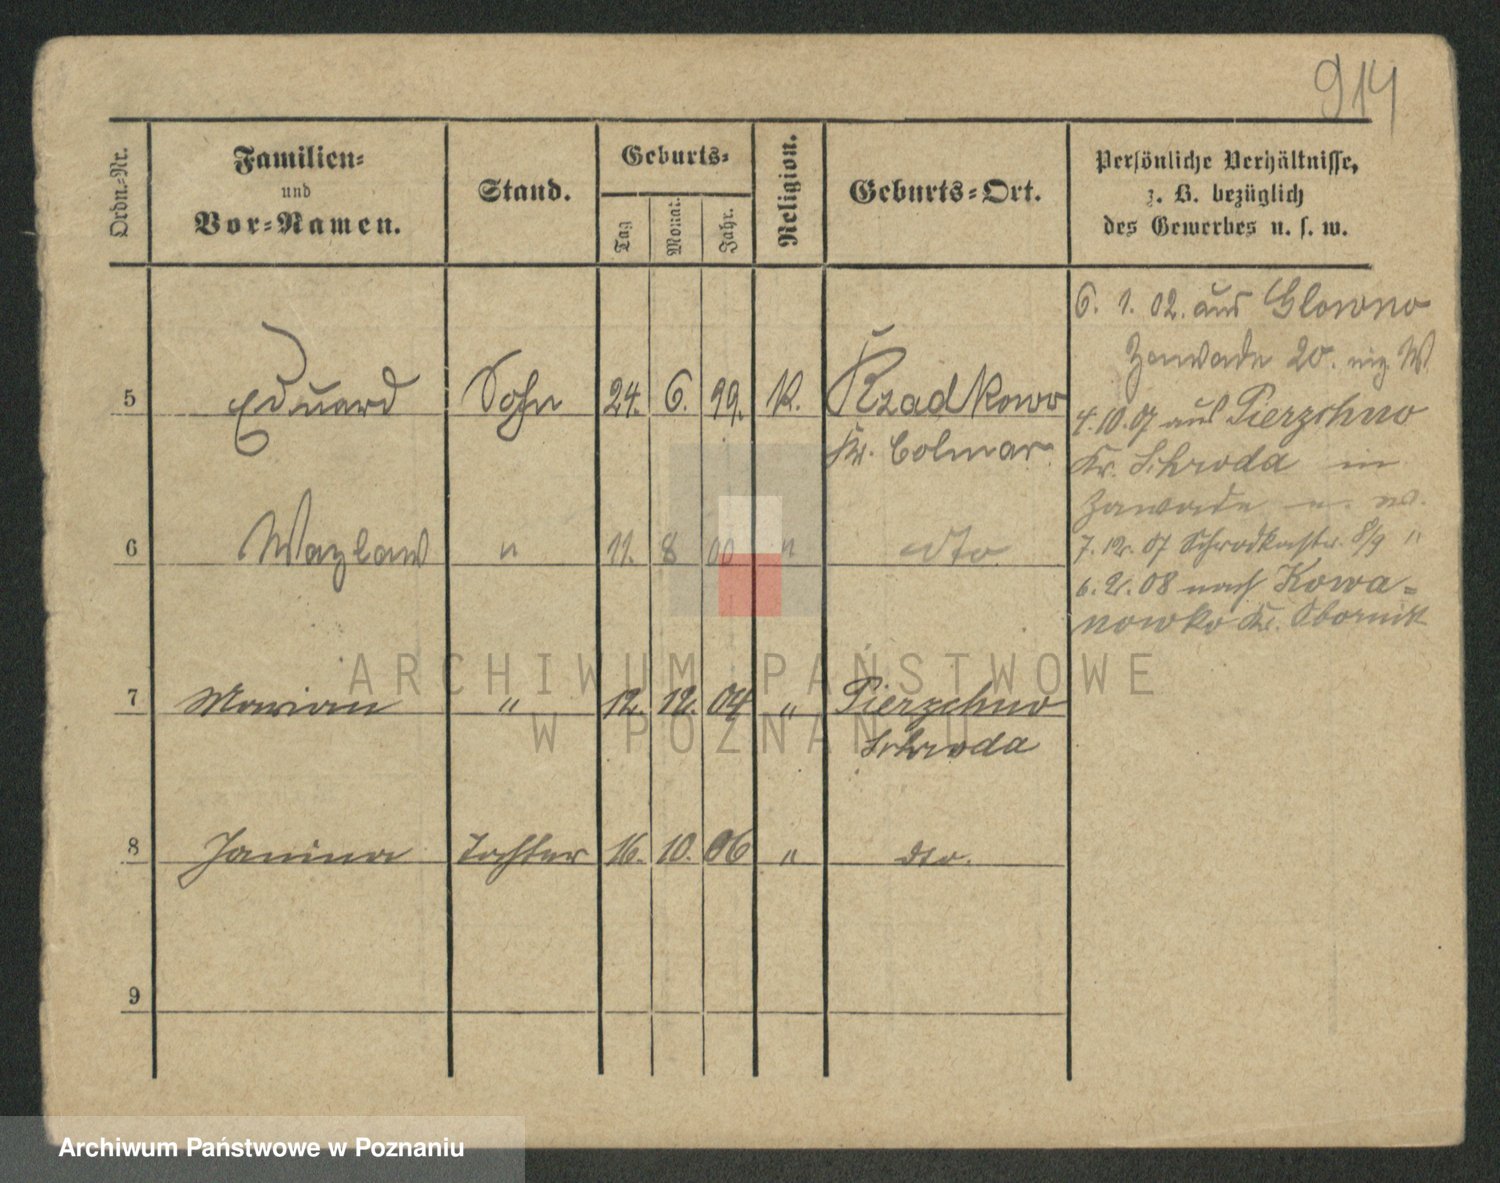 914
Ordn.-Nr.
Familien-
und
Vor-Namen.
Stand.
Geburts-
Tag
Monat.
Jahr.
Religion.
Geburts-Ort.
Persönliche Verhältnisse,
z. B. bezüglich
des Gewerbes u. s. w.
6. 1. 02. aus Glowno
Zawade 20.
5 Eduard Sohn 24. 6. 99. K. Rzadkowo
Kr. Colmar
4. 10. 07 aus Pierzchno
Kr. Schroda in
Zawade
6 Wazlaw " 11. 8 00 " dto
7. 12. 07 8/9 "
6. 2. 08 nach Kowa-
nowko Kr. Obornik
7 Marian " 12. 12. 04 " Pierzchno
Schroda
8 Janina Tochter 16. 10. 06 " dto.
9
ARCHIWUM PAŃSTWOWE
W POZNANIU
Archiwum Państwowe w Poznaniu